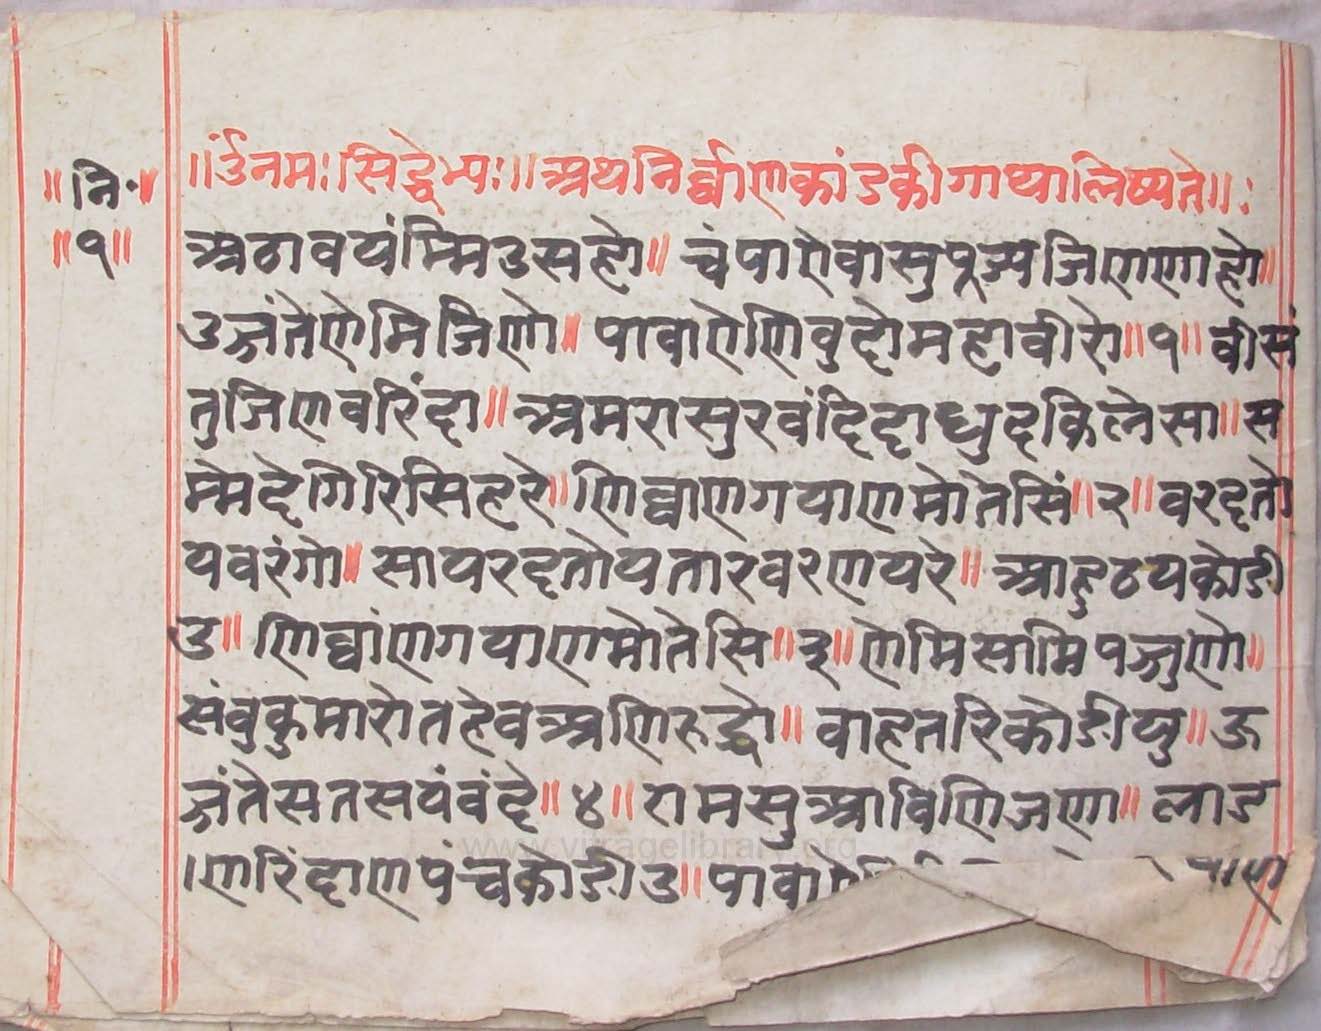 ॥नि॰॥
॥१॥
॥ॐनमःसिद्धेभ्यः॥अथनिर्व्वाणकांडकीगाथालिष्यते॥ः
अठावयंम्मिउसहो॥ चंपाऐवासुपूज्यजिणणाहो॥
उज्जंतेणेमिजिणो॥ पावाऐणिवुदोमहावीरो॥१॥ वीसं
तुजिणवरिंदा॥ अमरासुरवंदिदाधुदकिलेसा॥स
म्मेदेगिरिसिहरे॥णिव्वाणगयाणमोतेसिं॥२॥ वरदतो
यवरंगो॥ सायरदतोयतारवरणयरे॥ आहुठयकोडी
उ॥ णिव्वांणगयाणमोतेसि॥३॥णेमिसामिपज्जुणो॥
संवुकुमारोतहेवअणिरुद्धो॥ वाहतरिकोडीयु॥ऊ
ज्जंतेसतसयंवंदे॥४॥ रामसुआविणिजणा॥ लाड
।णरिंदाणपंचकोडीउ॥पावाऐ
www.vitragelibrary.org